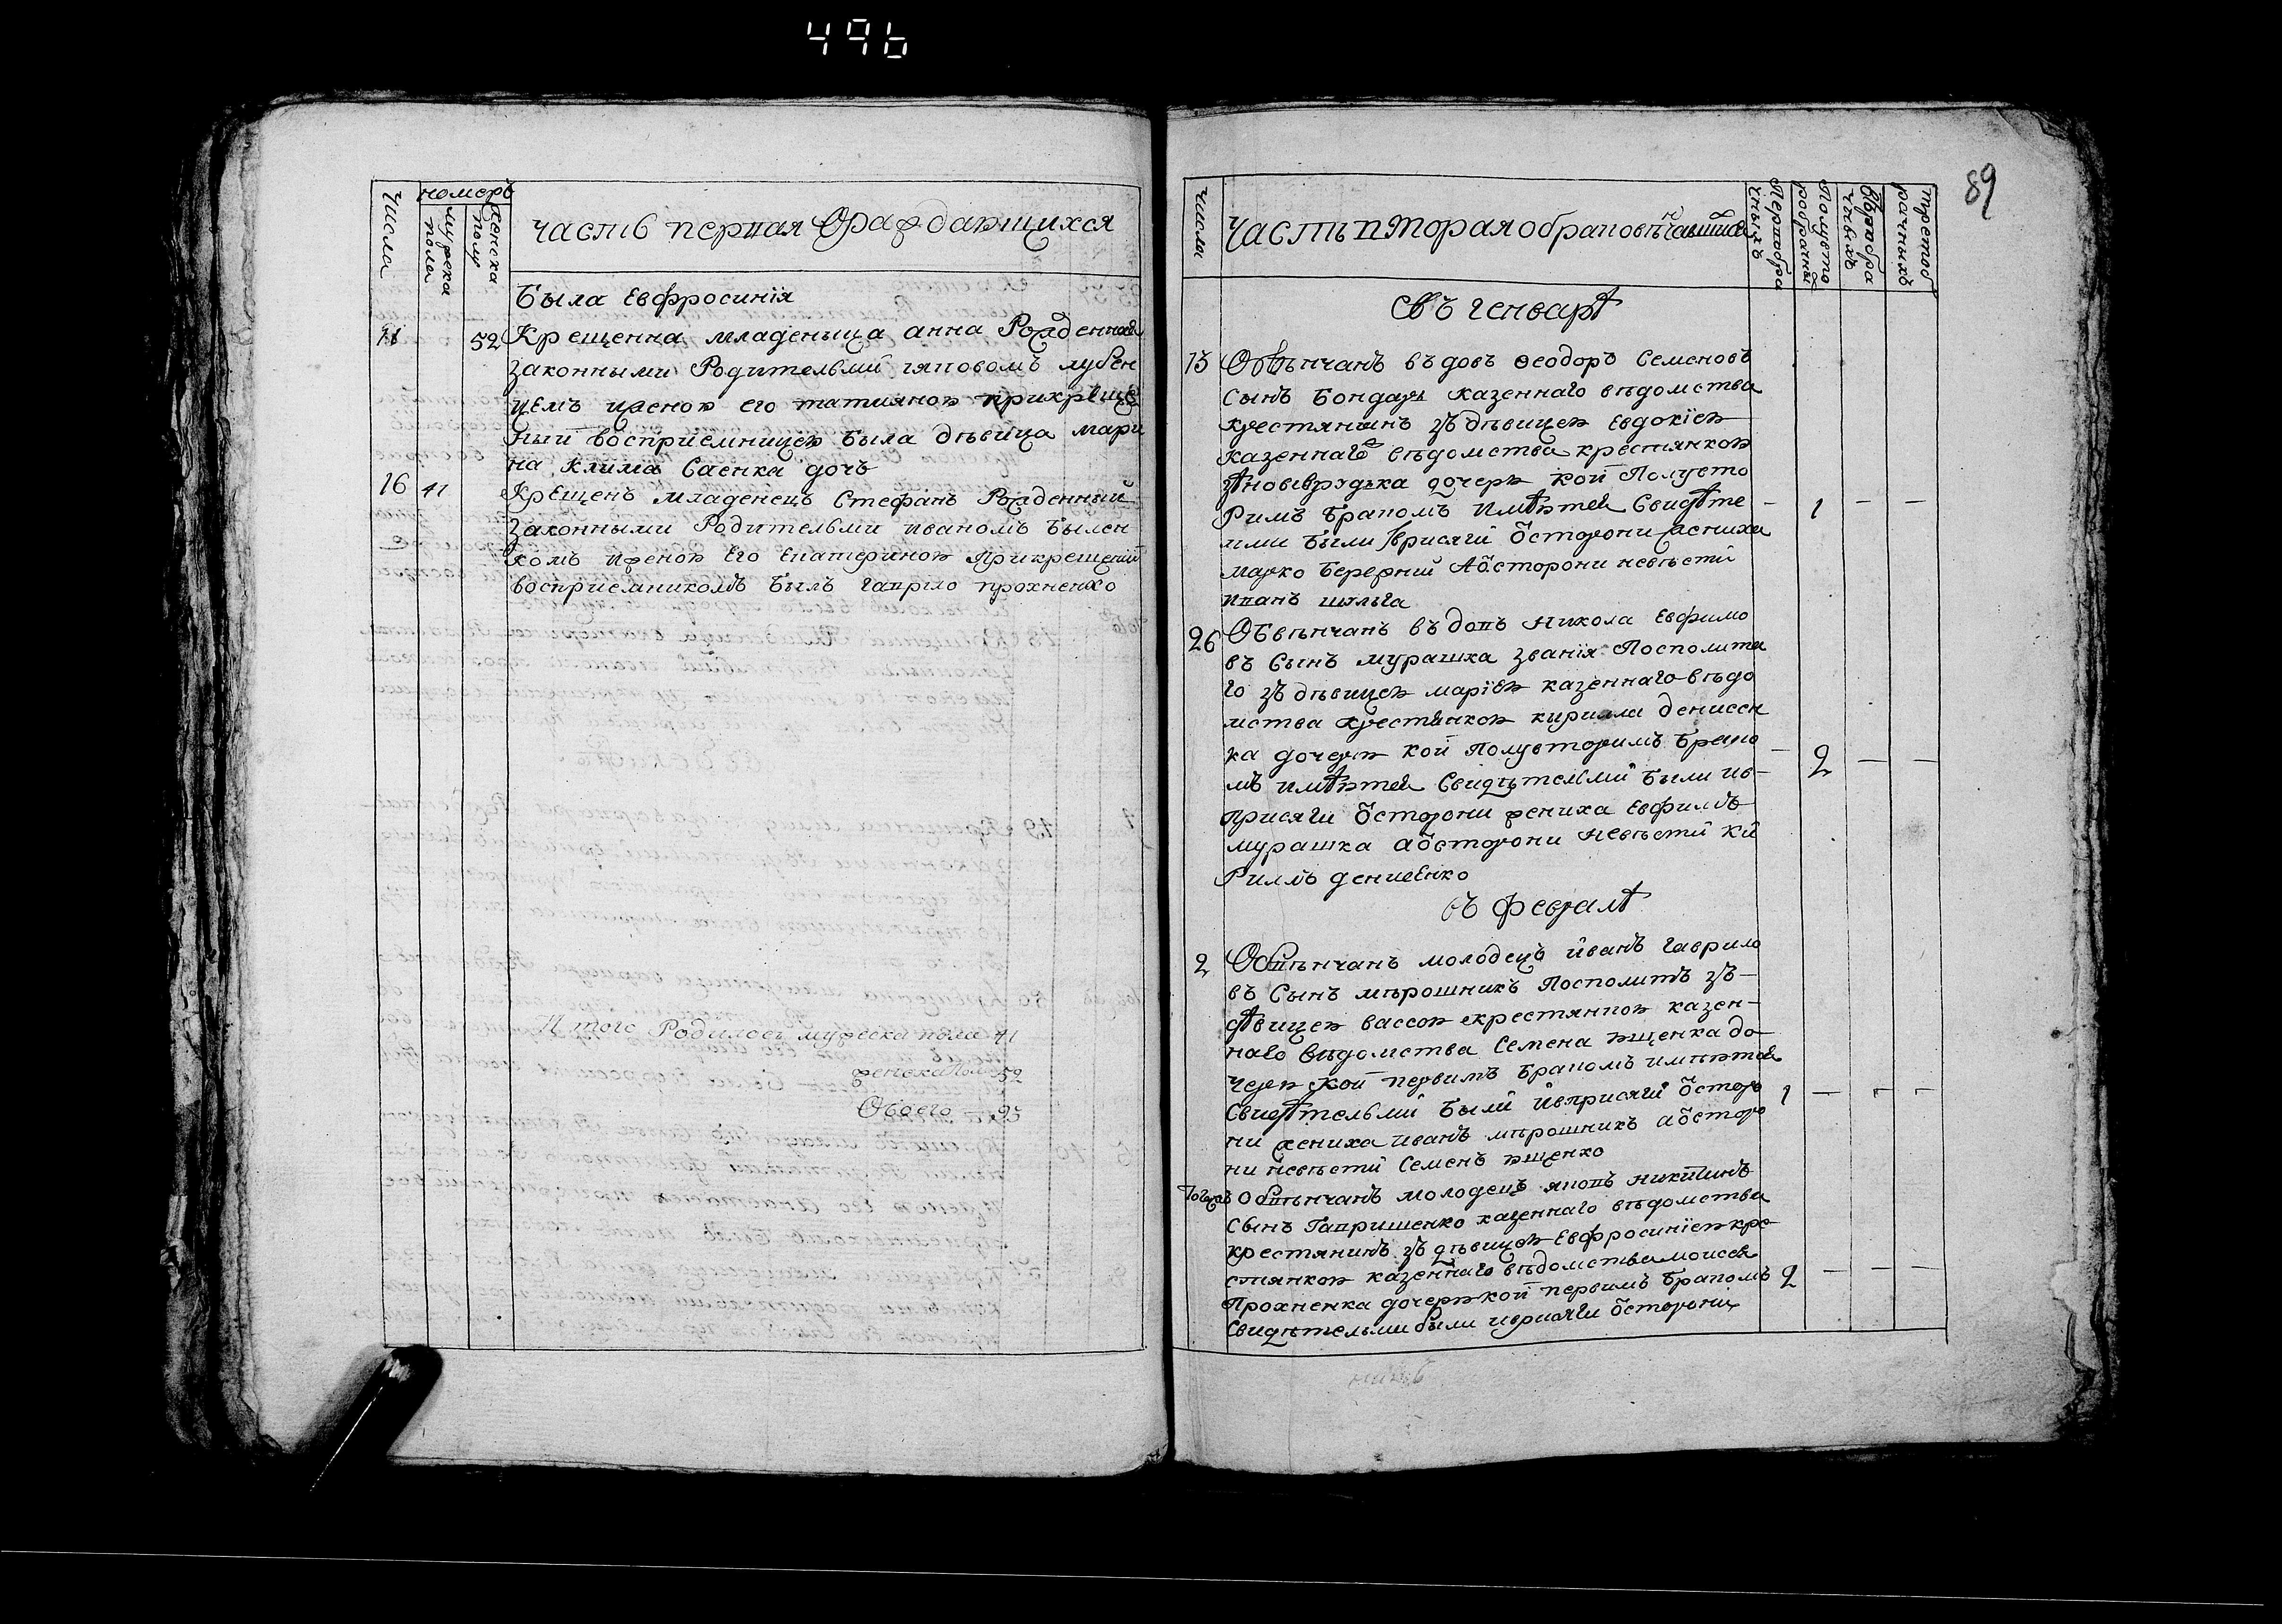 496
89
числа
номеръ
мужска пола
женска полу
часть первая Ораждающихся
Была Евфросинія
11 52 Крещенна младеныца анна Рожденная
законными Родителми яковомъ лубен
цемъ иженою его татияною прикреще
ный восприемницею была дѣвица мари
на клима Саенка дочь
16 41 Крещенъ младенецъ Стефанъ Рожденный
законными Родителми иваномъ Былен
комъ иженою Его Екатериною Прикрещений
восприемникомъ Былъ гаврило прохненко
Итого Родилось мужеска пола 41
женска полу 52
Обоего — 93
числа
Часть вторая обраковѣнчавшихся
Первобра чныхъ
Полувто робрачны
Второбра чныхъ
третоб рачныхъ
Въ генварѣ
13 Обвѣнчанъ въдовъ Ѳеодоръ Семеновъ
Сынъ Бондарь казеннаго вѣдомства
крестянинъ зъдѣвицею Евдокіею
казеннаго вѣдомства крестянкою
дочерю кой Полувто
Римъ Бракомъ Имѣется Свидѣте – 1 – –
лми Были Іврисяги ѿсторони жениха
марко Бережний Аѿсторони невѣсти
иванъ шульга
26 Обвѣнчанъ въдовъ Никола Евфимо
въ Сынъ мурашка званія Посполита
го зъдѣвицею маріею казеннаго вѣдо
мства крестянкою кирилла денисен
ка дочерю кой Полувторимъ Брако – 2 – –
мъ имѣется Свидѣтелми Были ив–
присяги ѿсторони жениха Евфимъ
мурашка аѿсторони Невѣсти Ки
Риллъ денисенко
въ Февралѣ
2 Обвѣнчанъ молодецъ иванъ Гаврило
въ Сынъ мѣрошникъ Посполитъ зъ–
дѣвицею вассою крестянкою казен–
наго вѣдомства Семена ющенка до–
черю кой первимъ Бракомъ имѣется
Свидѣтелми Были ивприсяги ѿсторо 1 – – –
ни жениха иванъ мѣрошникъ аѿсторо
ни невѣсти Семенъ ющенко
Тогожъ Обвѣнчанъ молодецъ яковъ никитинъ
Сынъ Гавришенко казеннаго вѣдомства
крестянинъ зъ дѣвицею Евфросиніею кре
стянкою казеннаго вѣдомства моисея
Прохненка дочерю кой первимъ Бракомъ 2 – – –
Свидѣтельми были иврисяги ѿсторони